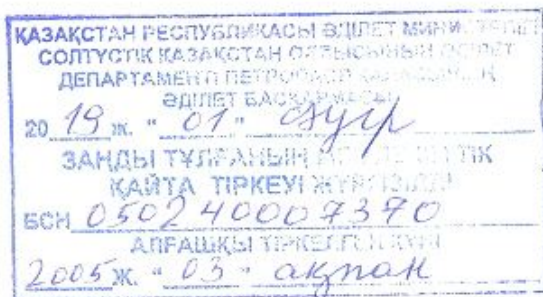 ҚАЗАҚСТАН РЕСПУБЛИКАСЫ ӘДІЛЕТ
СОЛТҮСТІК ҚАЗАҚСТАН ОБЛЫСЫНЫҢ ӘДІЛЕТ
ДЕПАРТАМЕНТІ ПЕТРОПАВЛ
ӘДІЛЕТ БАСҚАРМАСЫ
20 19 ж. "01"
ЗАҢДЫ ТҰЛҒАНЫҢ
ҚАЙТА ТІРКЕУІ ЖҮРГІЗІЛДІ
БСН 050240007370
АЛҒАШҚЫ ТІРКЕЛГЕН КҮНІ
2005 ж. "03" ақпан